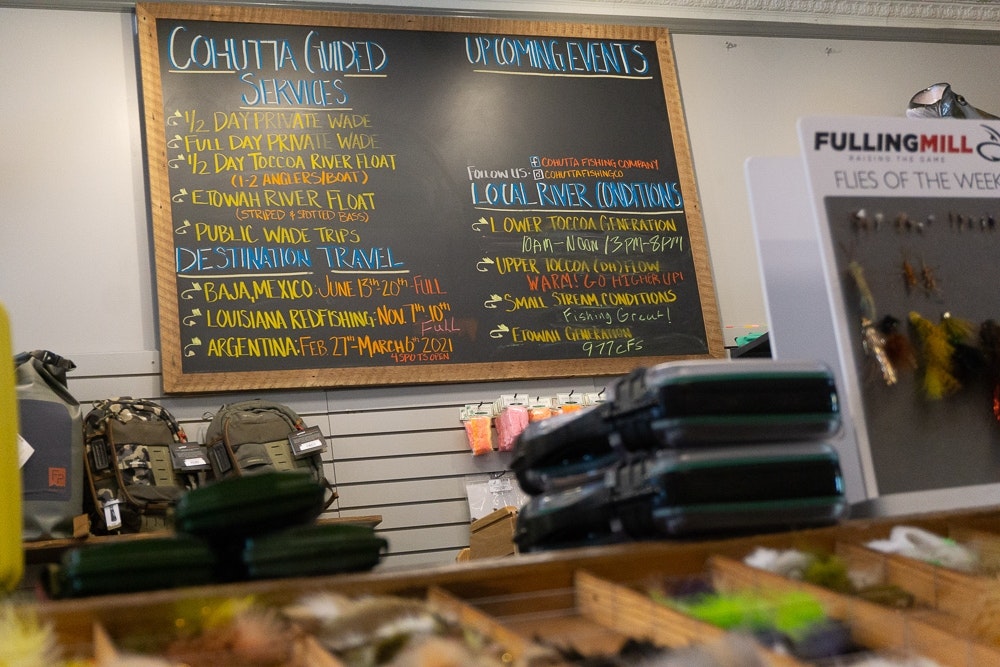 COHUTTA GUIDED
SERVICES
1/2 DAY PRIVATE WADE
FULL DAY PRIVATE WADE
1/2 DAY TOCCOA RIVER FLOAT
(1-2 ANGLERS/BOAT)
ETOWAH RIVER FLOAT
(STRIPED & SPOTTED BASS)
PUBLIC WADE TRIPS
DESTINATION TRAVEL
BAJA, MEXICO: JUNE 13th-20th-FULL
LOUISIANA REDFISHING: NOV. 7th-10th
Full
ARGENTINA: FEB 27th-MARCH 6th 2021
4 SPOTS OPEN
UPCOMING EVENTS
COHUTTA FISHING COMPANY
FOLLOW US-
COHUTTAFISHINGCO
LOCAL RIVER CONDITIONS
LOWER TOCCOA GENERATION
10AM-NOON / 3PM-8PM
UPPER TOCCOA (DH) FLOW
WARM! GO HIGHER UP!
SMALL STREAM CONDITIONS
Fishing Great!
ETOWAH GENERATION
977 CFS
FULLINGMILL
RAISING THE GAME
FLIES OF THE WEEK